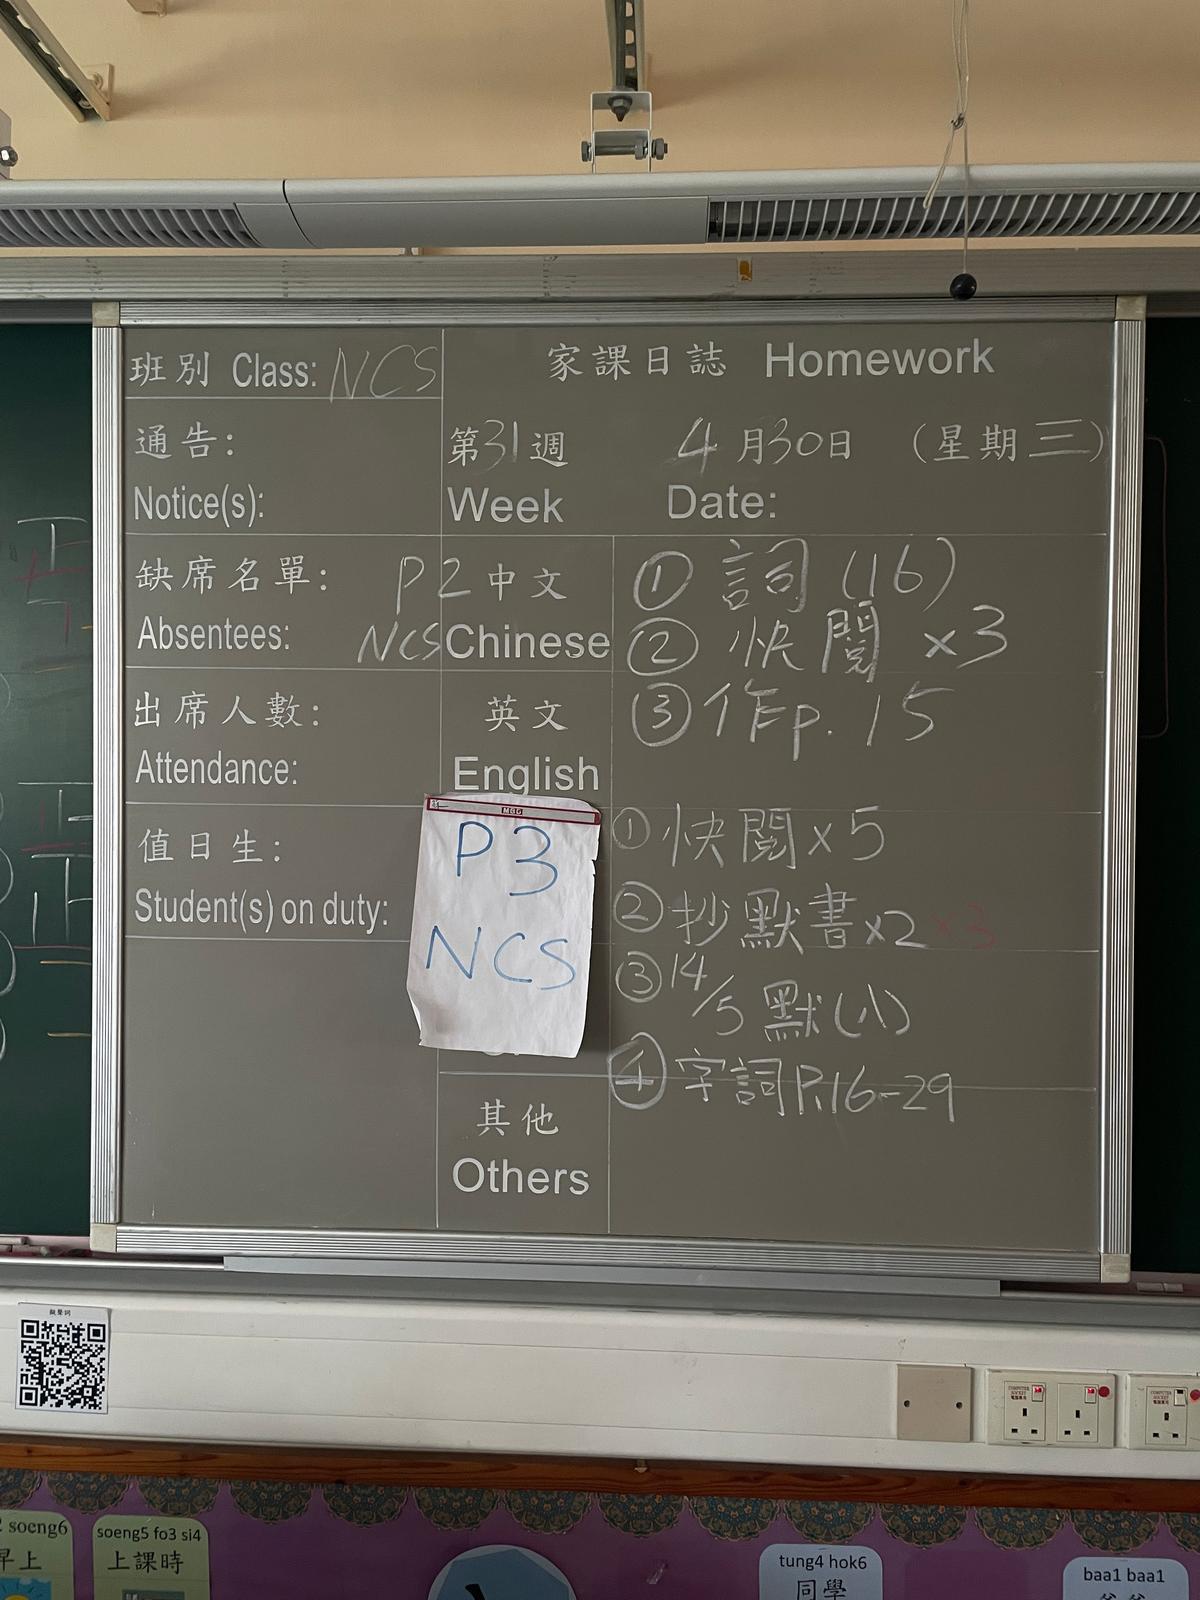 班別 Class: NCS
家課日誌 Homework
通告:
Notice(s):
第31週 4月30日 (星期三)
Week Date:
缺席名單:
Absentees:
P2 中文
NCS Chinese
① 詞 (16)
② 快閱 x3
③ 作p. 15
出席人數:
Attendance:
英文
English
值日生:
Student(s) on duty:
P3
NCS
① 快閱 x 5
② 抄默書 x2 x3
③ 14/5 默(八)
④ 字詞 P.16-29
其他
Others
擬聲詞
COMPUTER SOCKET
COMPUTER SOCKET
2 soeng6
早上
soeng5 fo3 si4
上課時
tung4 hok6
同學
baa1 baa1
爸爸